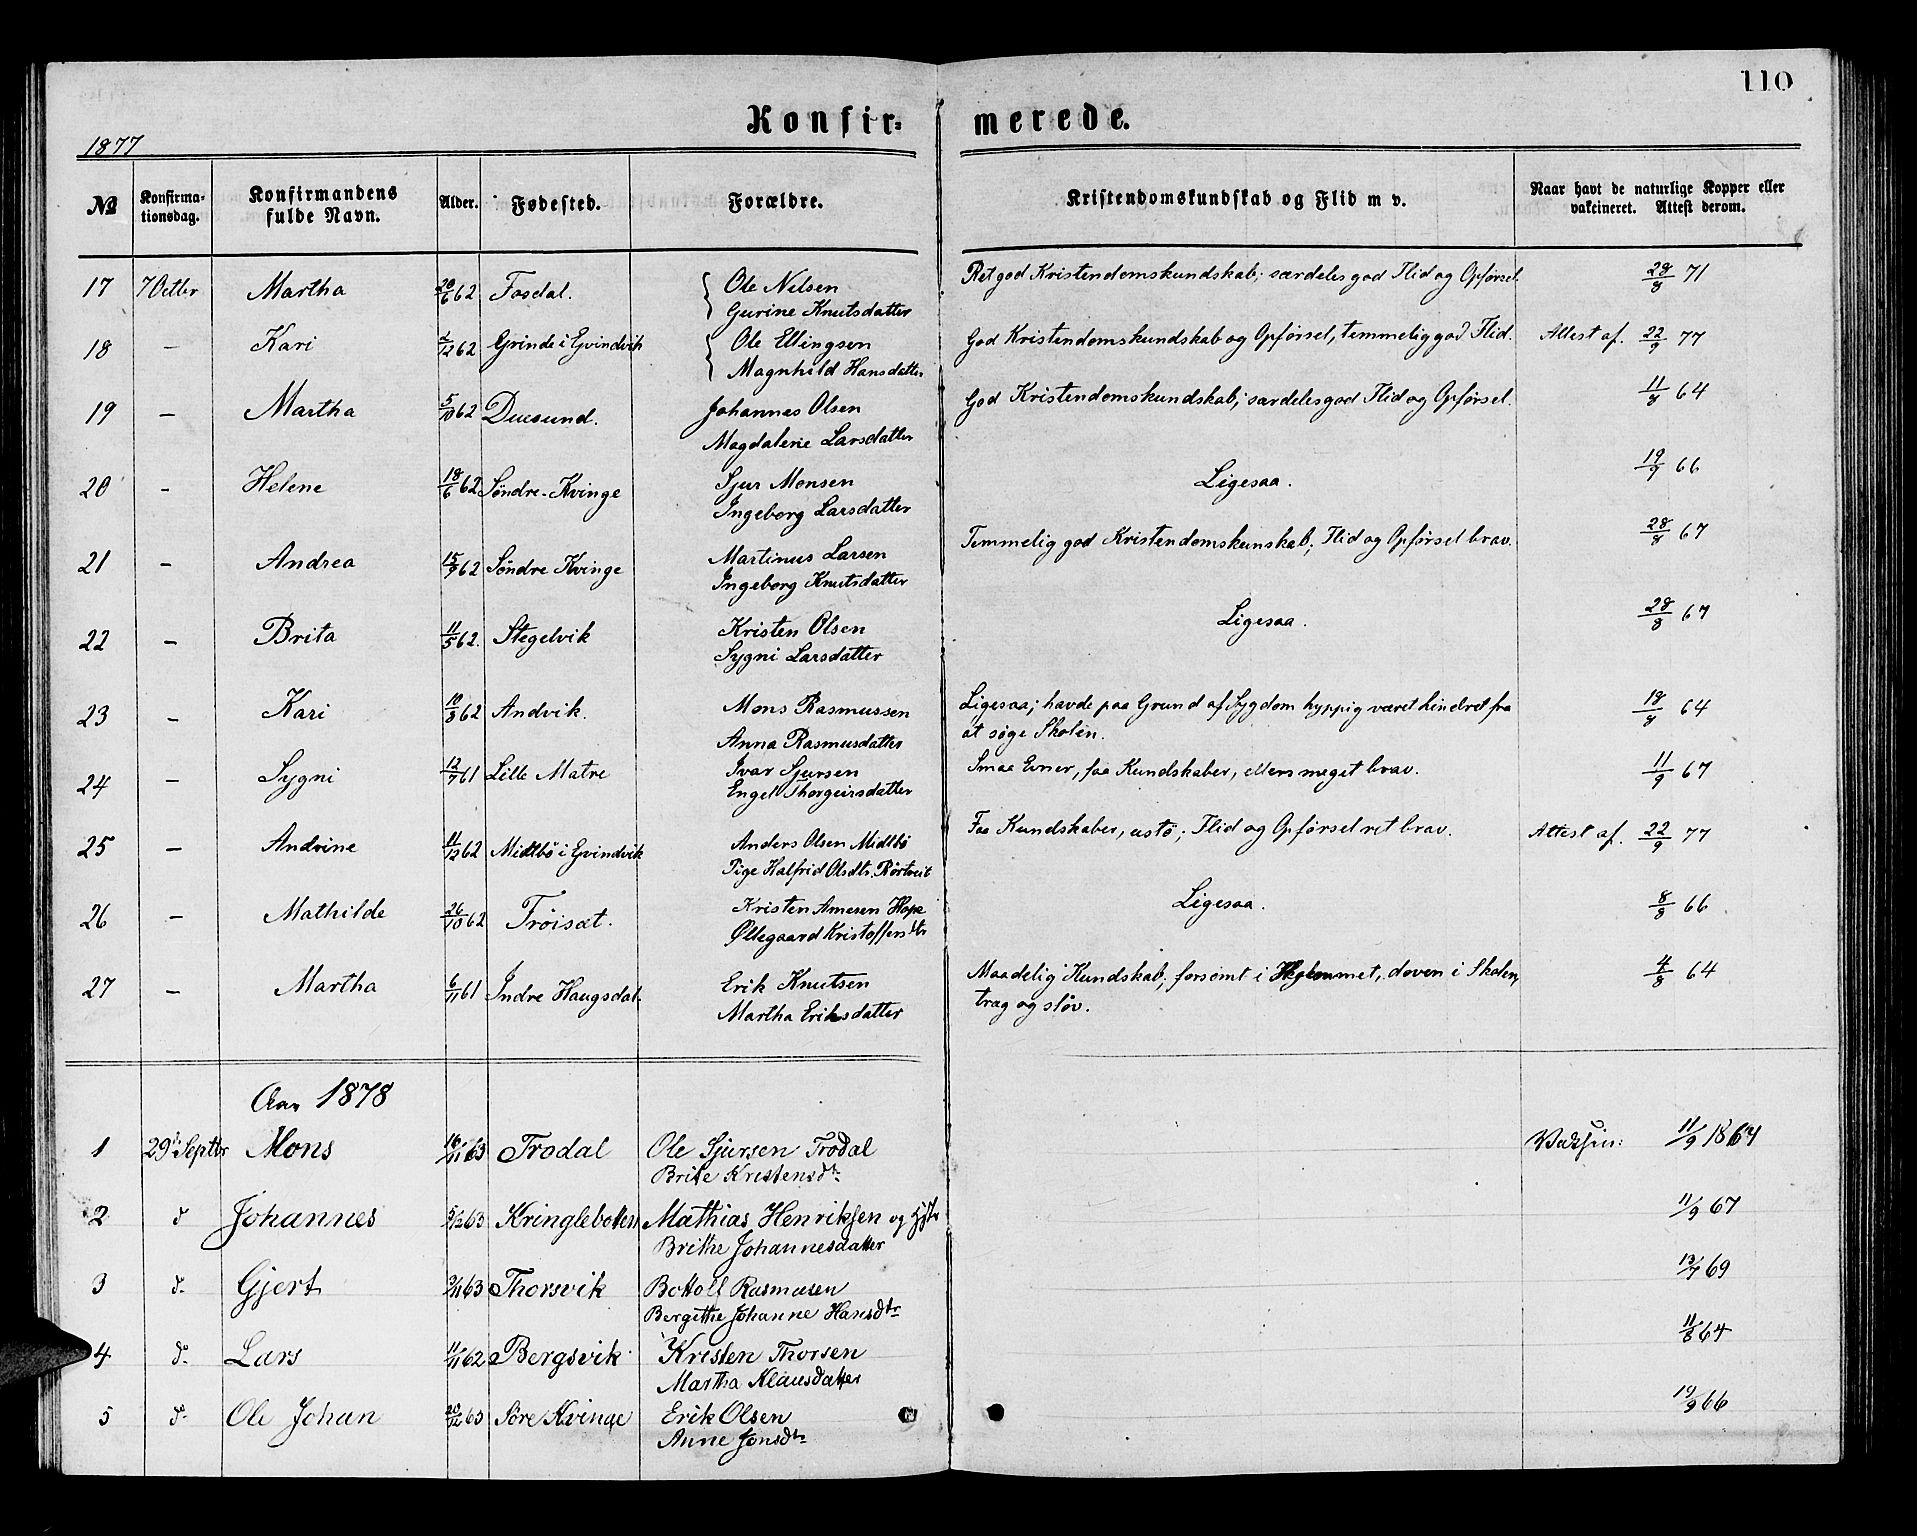 110
Konfirmerede.
1877
№ Konfirmationsdag. Konfirmandens fulde Navn. Alder. Fødested. Forældre. Kristendomskundskab og Flid m v. Naar havt de naturlige Kopper eller vakcineret. Attest derom.
17 7 Octbr Martha 20/6 62 Fosdal. Ole Nilsen Ret god Kristendomskundskab; særdeles god Flid og Opførsel. 28/8 71
Gurine Knutsdatter
18 – Kari 2/12 62 Grinde i Gvindvik Ole Ellingsen God Kristendomskundskab og Opførsel, temmelig god Flid. Attest af. 22/9 77
Magnhild Hansdatter
19 – Martha 5/10 62 Duesund. Johannes Olsen God Kristendomskundskab; særdeles god Flid og Opførsel. 11/8 64
Magdalene Larsdatter
20 – Helene 18/6 62 Søndre-Kvinge Sjur Monsen Ligesaa. 19/9 66
Ingeborg Larsdatter
21 – Andrea 15/9 62 Søndre Kvinge Martinus Larsen Temmelig god Kristendomskunskab; Flid og Opførsel brav. 28/8 67
Ingeborg Knutsdatter
22 – Brita 11/5 62. Stegelvik Kristen Olsen Ligesaa. 28/8 67
Sygni Larsdatter
23 – Kari 10/8 62 Andvik. Mons Rasmussen Ligesaa; havde paa Grund af Sygdom hyppig været hindret fra 18/8 64
Anna Rasmusdatter at søge Skolen.
24 – Sygni 12/7 61 Lille Matre Ivar Sjursen Smaa Evner, faa Kundskaber, ellers meget brav. 11/9 67
Engel Thorgeirsdatter
25 – Andrine 11/12 62 Midtbö i Gvindvik Anders Olsen Midtbö Faa Kundskaber, ustö; Flid og Opførsel ret brav. Attest af. 22/9 77
Pige Halfrid Olsdtr. Rörtveit
26 – Mathilde 26/10 62 Tröisæt. Kristen Arnesen Hope Ligesaa. 8/8 66
Øllegaard Kristoffersdtr
27 – Martha 6/11 61 Indre Haugsdal. Erik Knutsen Maadelig Kundskab; forsömt i Hjemmet, doven i Skolen, 4/8 64
Martha Eriksdatter træg og sløv.
Aar 1878
1 29de Septbr Mons 16/11 63 Trodal Ole Sjursen Trodal Vaksin: 11/9 1867
Brite Kristensdtr
2 do Johannes 5/12 63 Kringlebotten Mathias Henriksen og Hustr 11/9 67
Brithe Johannesdatter
3 do Gjert 3/11 63 Thorsvik Bottolf Rasmusen 13/7 69
Bergithe Johanne Hansdtr
4 do Lars 11/11 62 Bergsvik Kristen Thorsen 11/8 64
Martha Klausdatter
5 do Ole Johan 20/12 63 Söre Kvinge Erik Olsen 19/9 66
Anne Jonsdtr